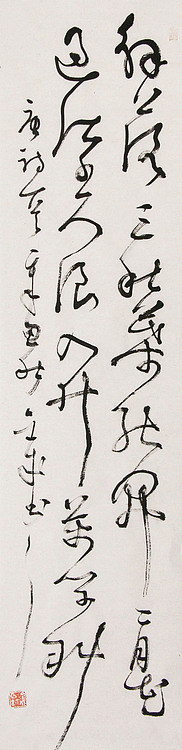 解落三秋葉能開二月花
過江千尺浪入竹萬竿斜
唐詩一首 辛丑秋 书